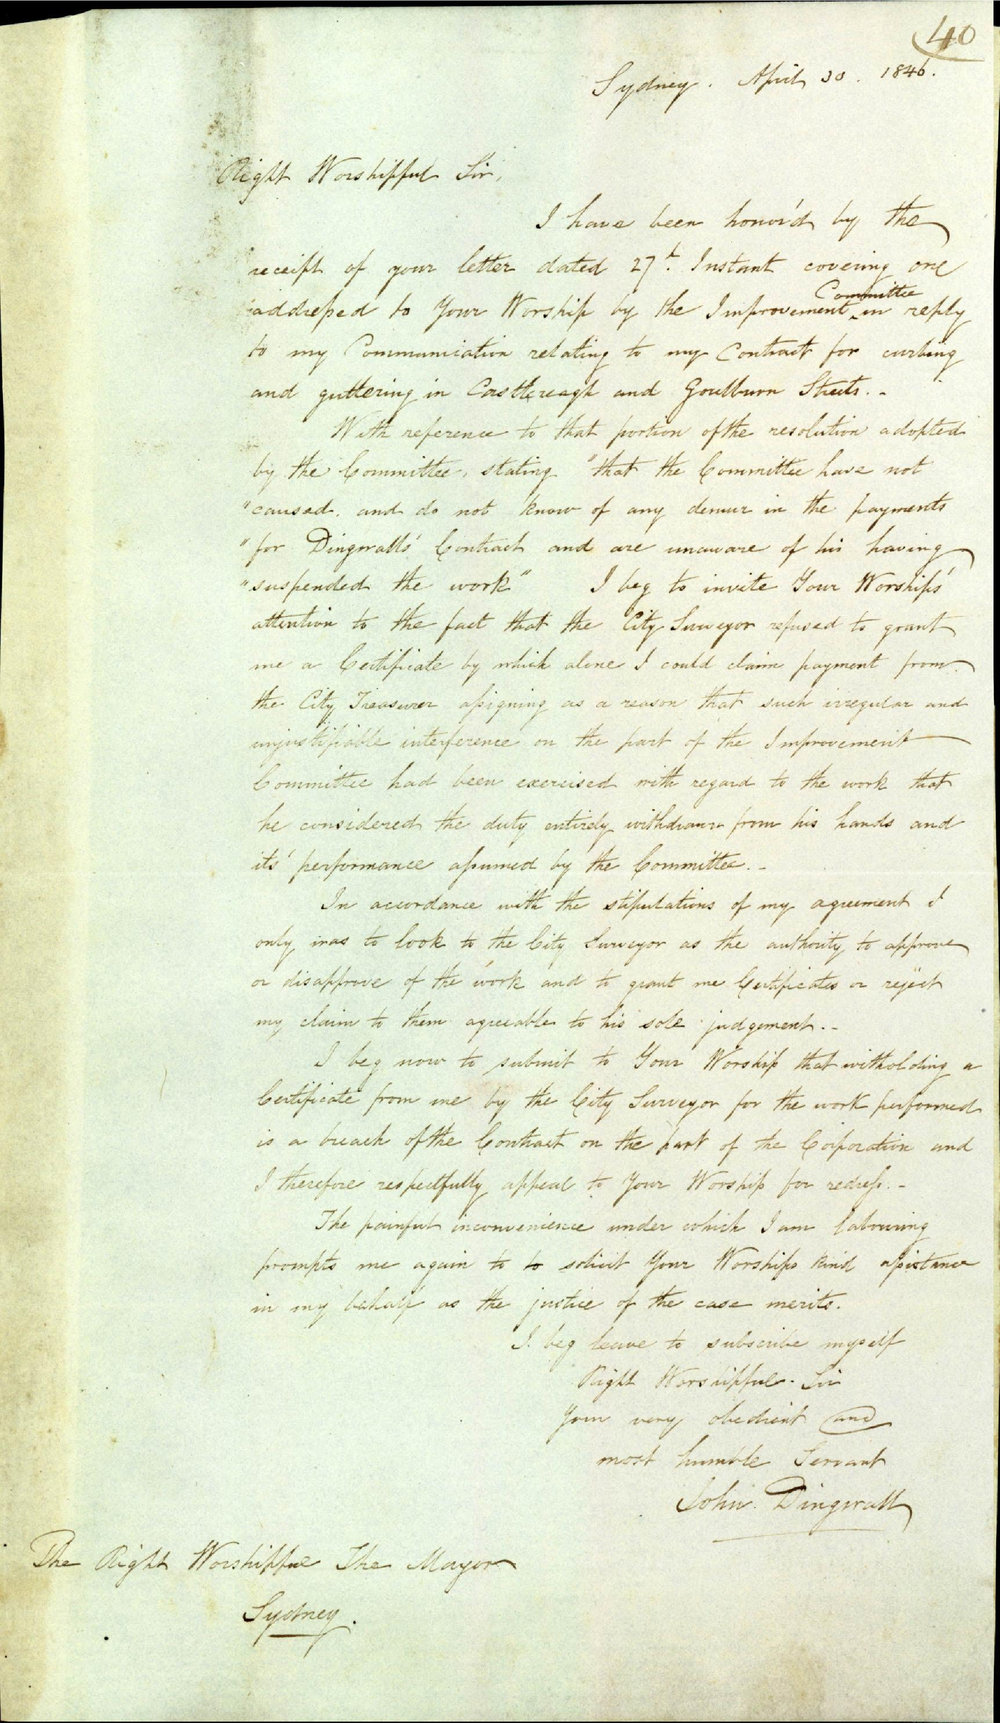 40
Sydney. April 30. 1846.
Right Worshipful Sir,
I have been honor'd by the
receipt of your letter dated 27th. Instant covering one
addressed to Your Worship by the Improvement Committee in reply
to my Communication relating to my Contract for curbing
and guttering in Castlereagh and Goulburn Streets. -
With reference to that portion of the resolution adopted
by the Committee, stating "that the Committee have not
"caused, and do not know of any demur in the payments
"for Dingwalls' Contract and are unaware of his having
"suspended the work" I beg to invite Your Worships'
attention to the fact that the City Surveyor refused to grant
me a Certificate by which alone I could claim payment from
the City Treasurer assigning as a reason that such irregular and
unjustifiable interference on the part of the Improvement
Committee had been exercised with regard to the work that
he considered the duty entirely withdrawn from his hands and
its' performance assumed by the Committee. -
In accordance with the stipulations of my agreement I
only was to look to the City Surveyor as the authority to approve
or disapprove of the work and to grant me Certificates or reject
my claim to them agreeable to his sole judgement. -
I beg now to submit to Your Worship that witholding a
Certificate from me by the City Surveyor for the work performed
is a breach of the Contract on the part of the Corporation and
I therefore respectfully appeal to Your Worship for redress. -
The painful inconvenience under which I am labouring
prompts me again to to solicit Your Worships kind assistance
in my behalf as the justice of the case merits.
I beg leave to subscribe myself
Right Worshipful Sir
Your very obedient and
most humble Servant
John Dingwall
The Right Worshipful The Mayor
Sydney.